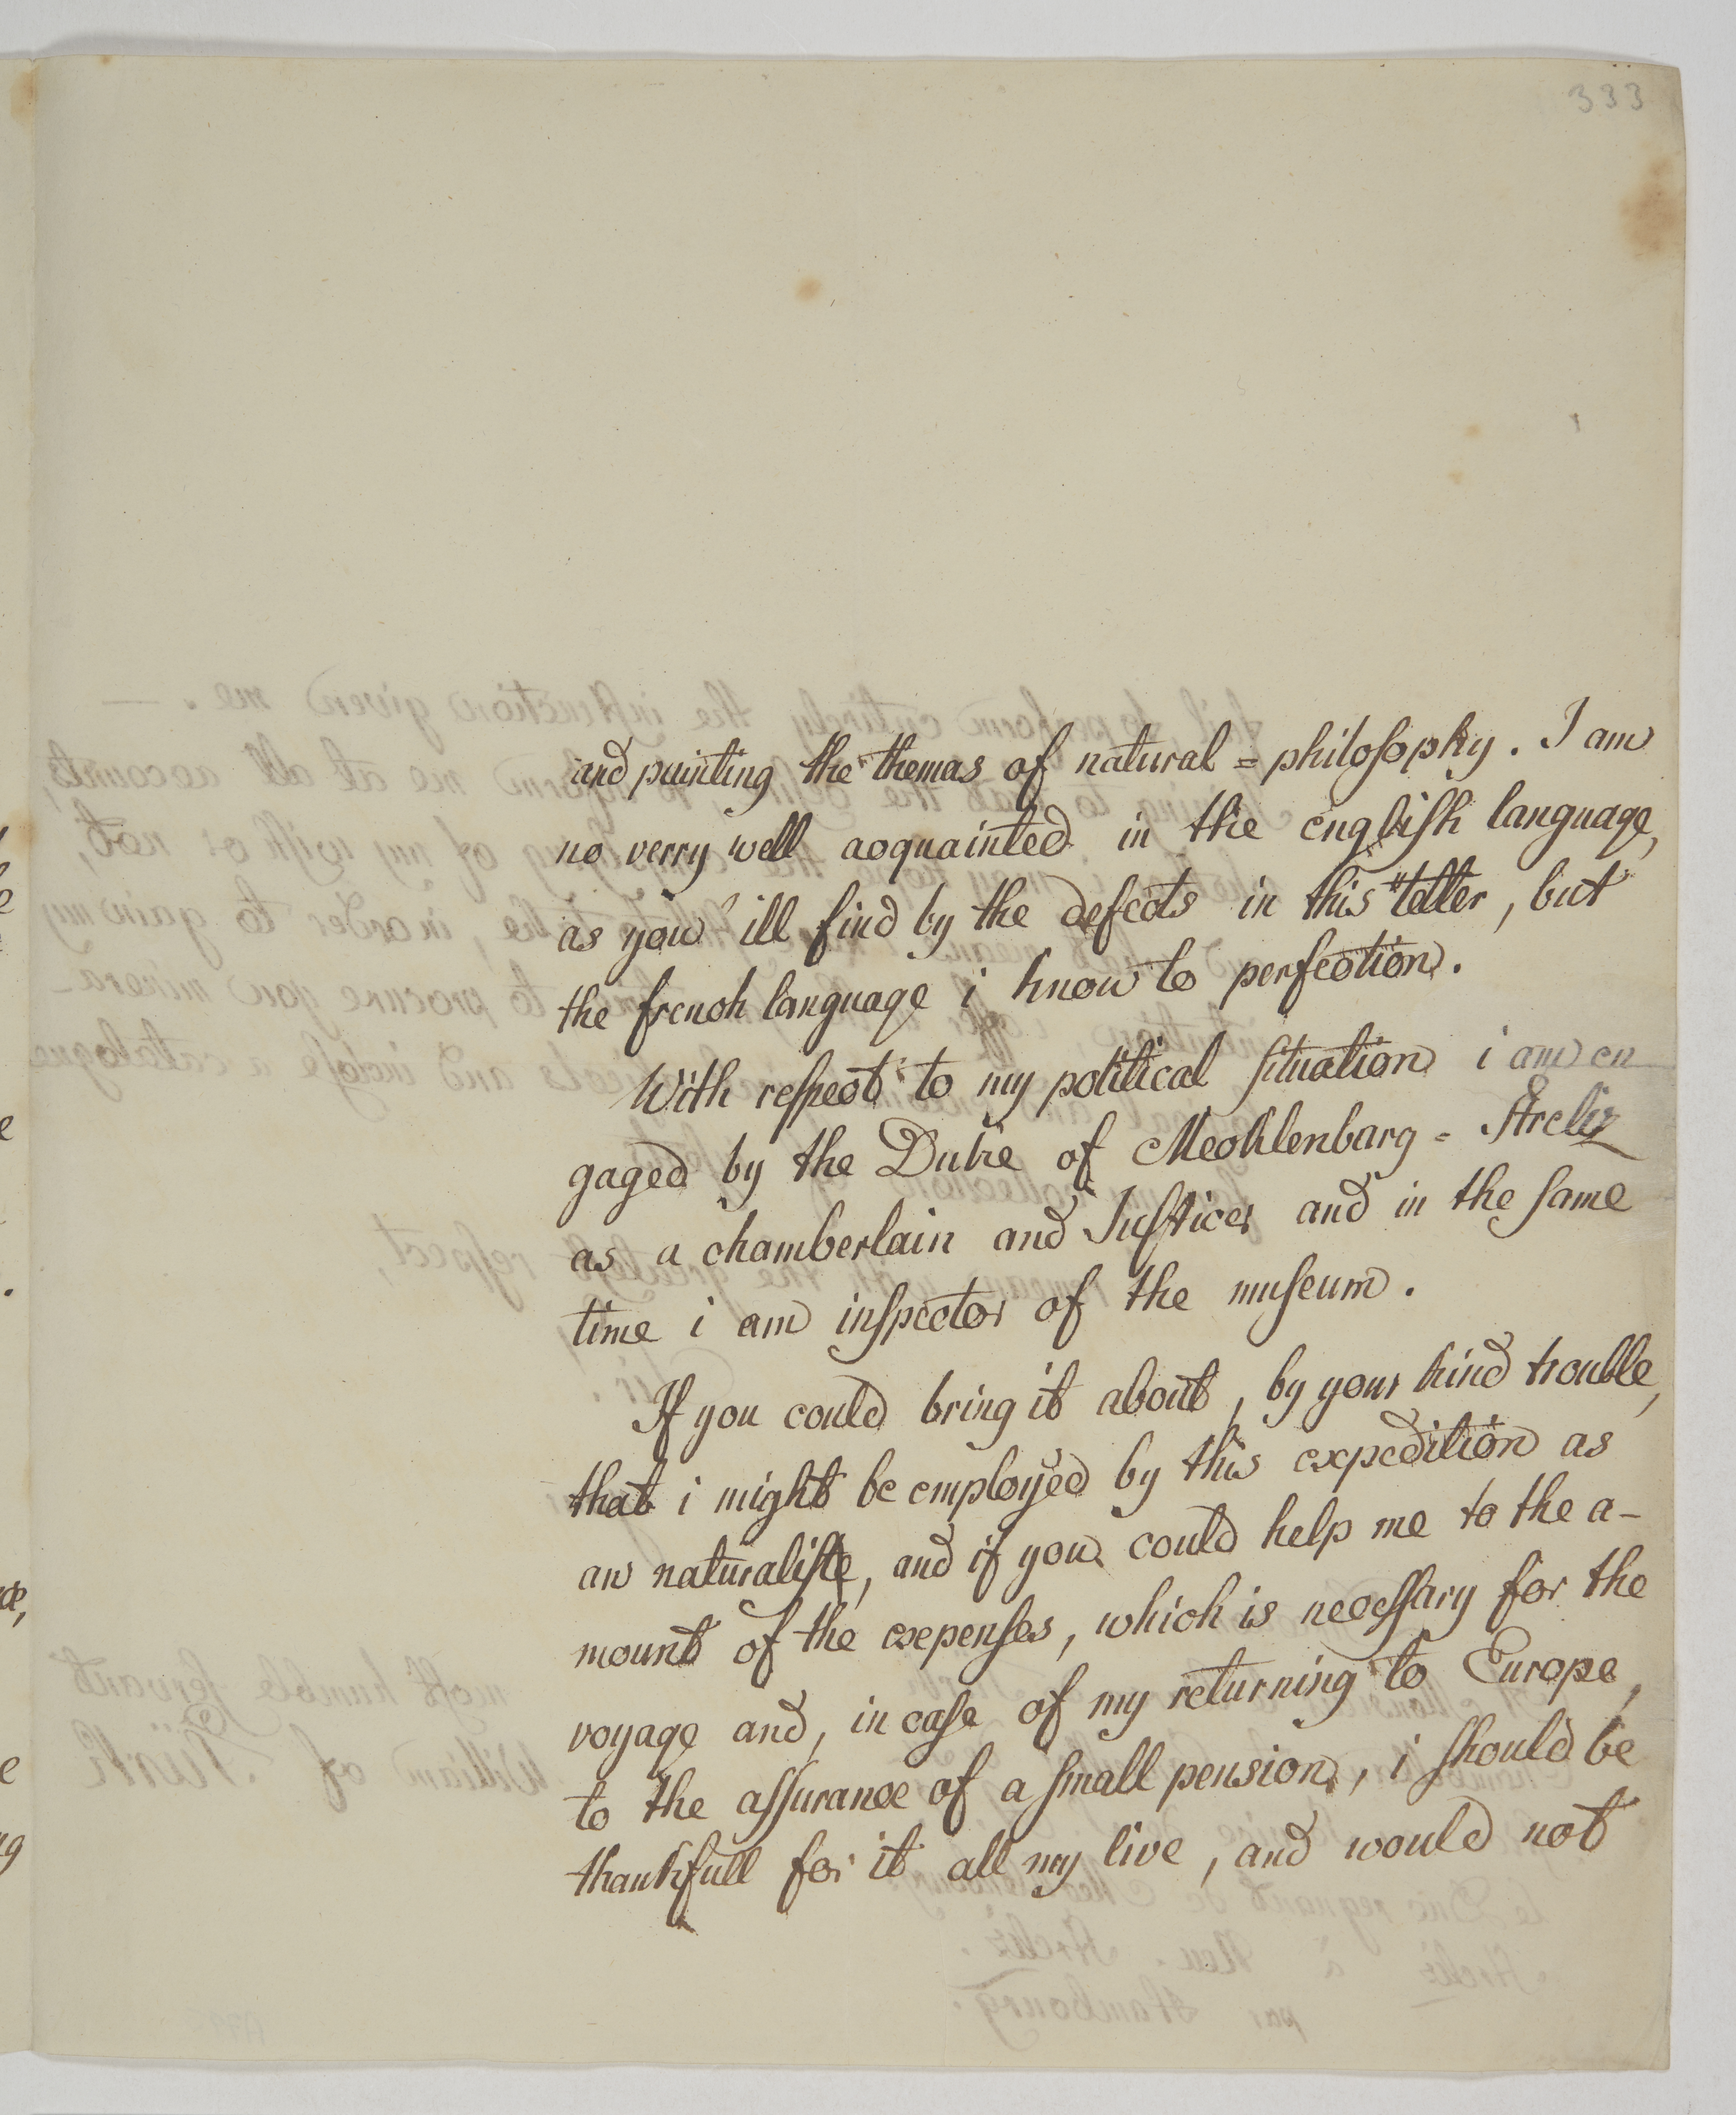 333
and puinting the themas of natural = philosophy. I am
no verry well acquainted in the english language,
as you 'ill find by the defects in this letter, but
the french language i know to perfection.
With respect to my political situation i am en
gaged by the Duke of Mecklenbarg = Streliz
as a chamberlain and Justicer and in the same
time i am inspector of the museum.
If you could bring it about, by your kind trouble,
that i might be employed by this expedition as
an naturaliste, and if you could help me to the a-
mount of the expenses, which is necessary for the
voyage and, in case of my returning to Europe,
to the assurance of a small pension, i should be
thankfull for it all my live, and would not